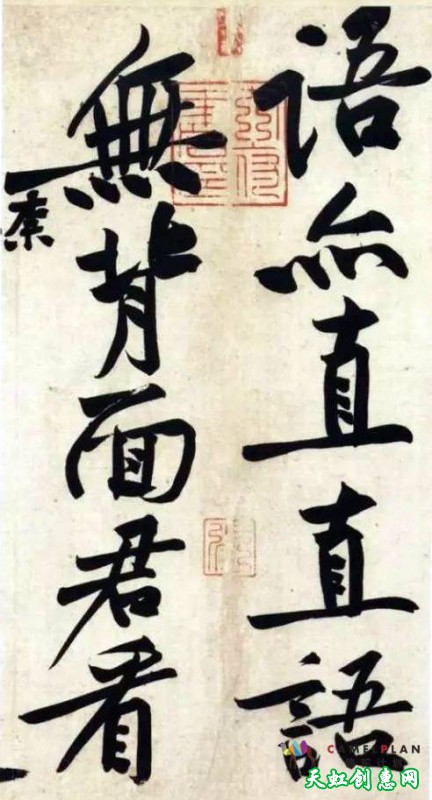 語亦直直語
無背面君看
天虹创惠网